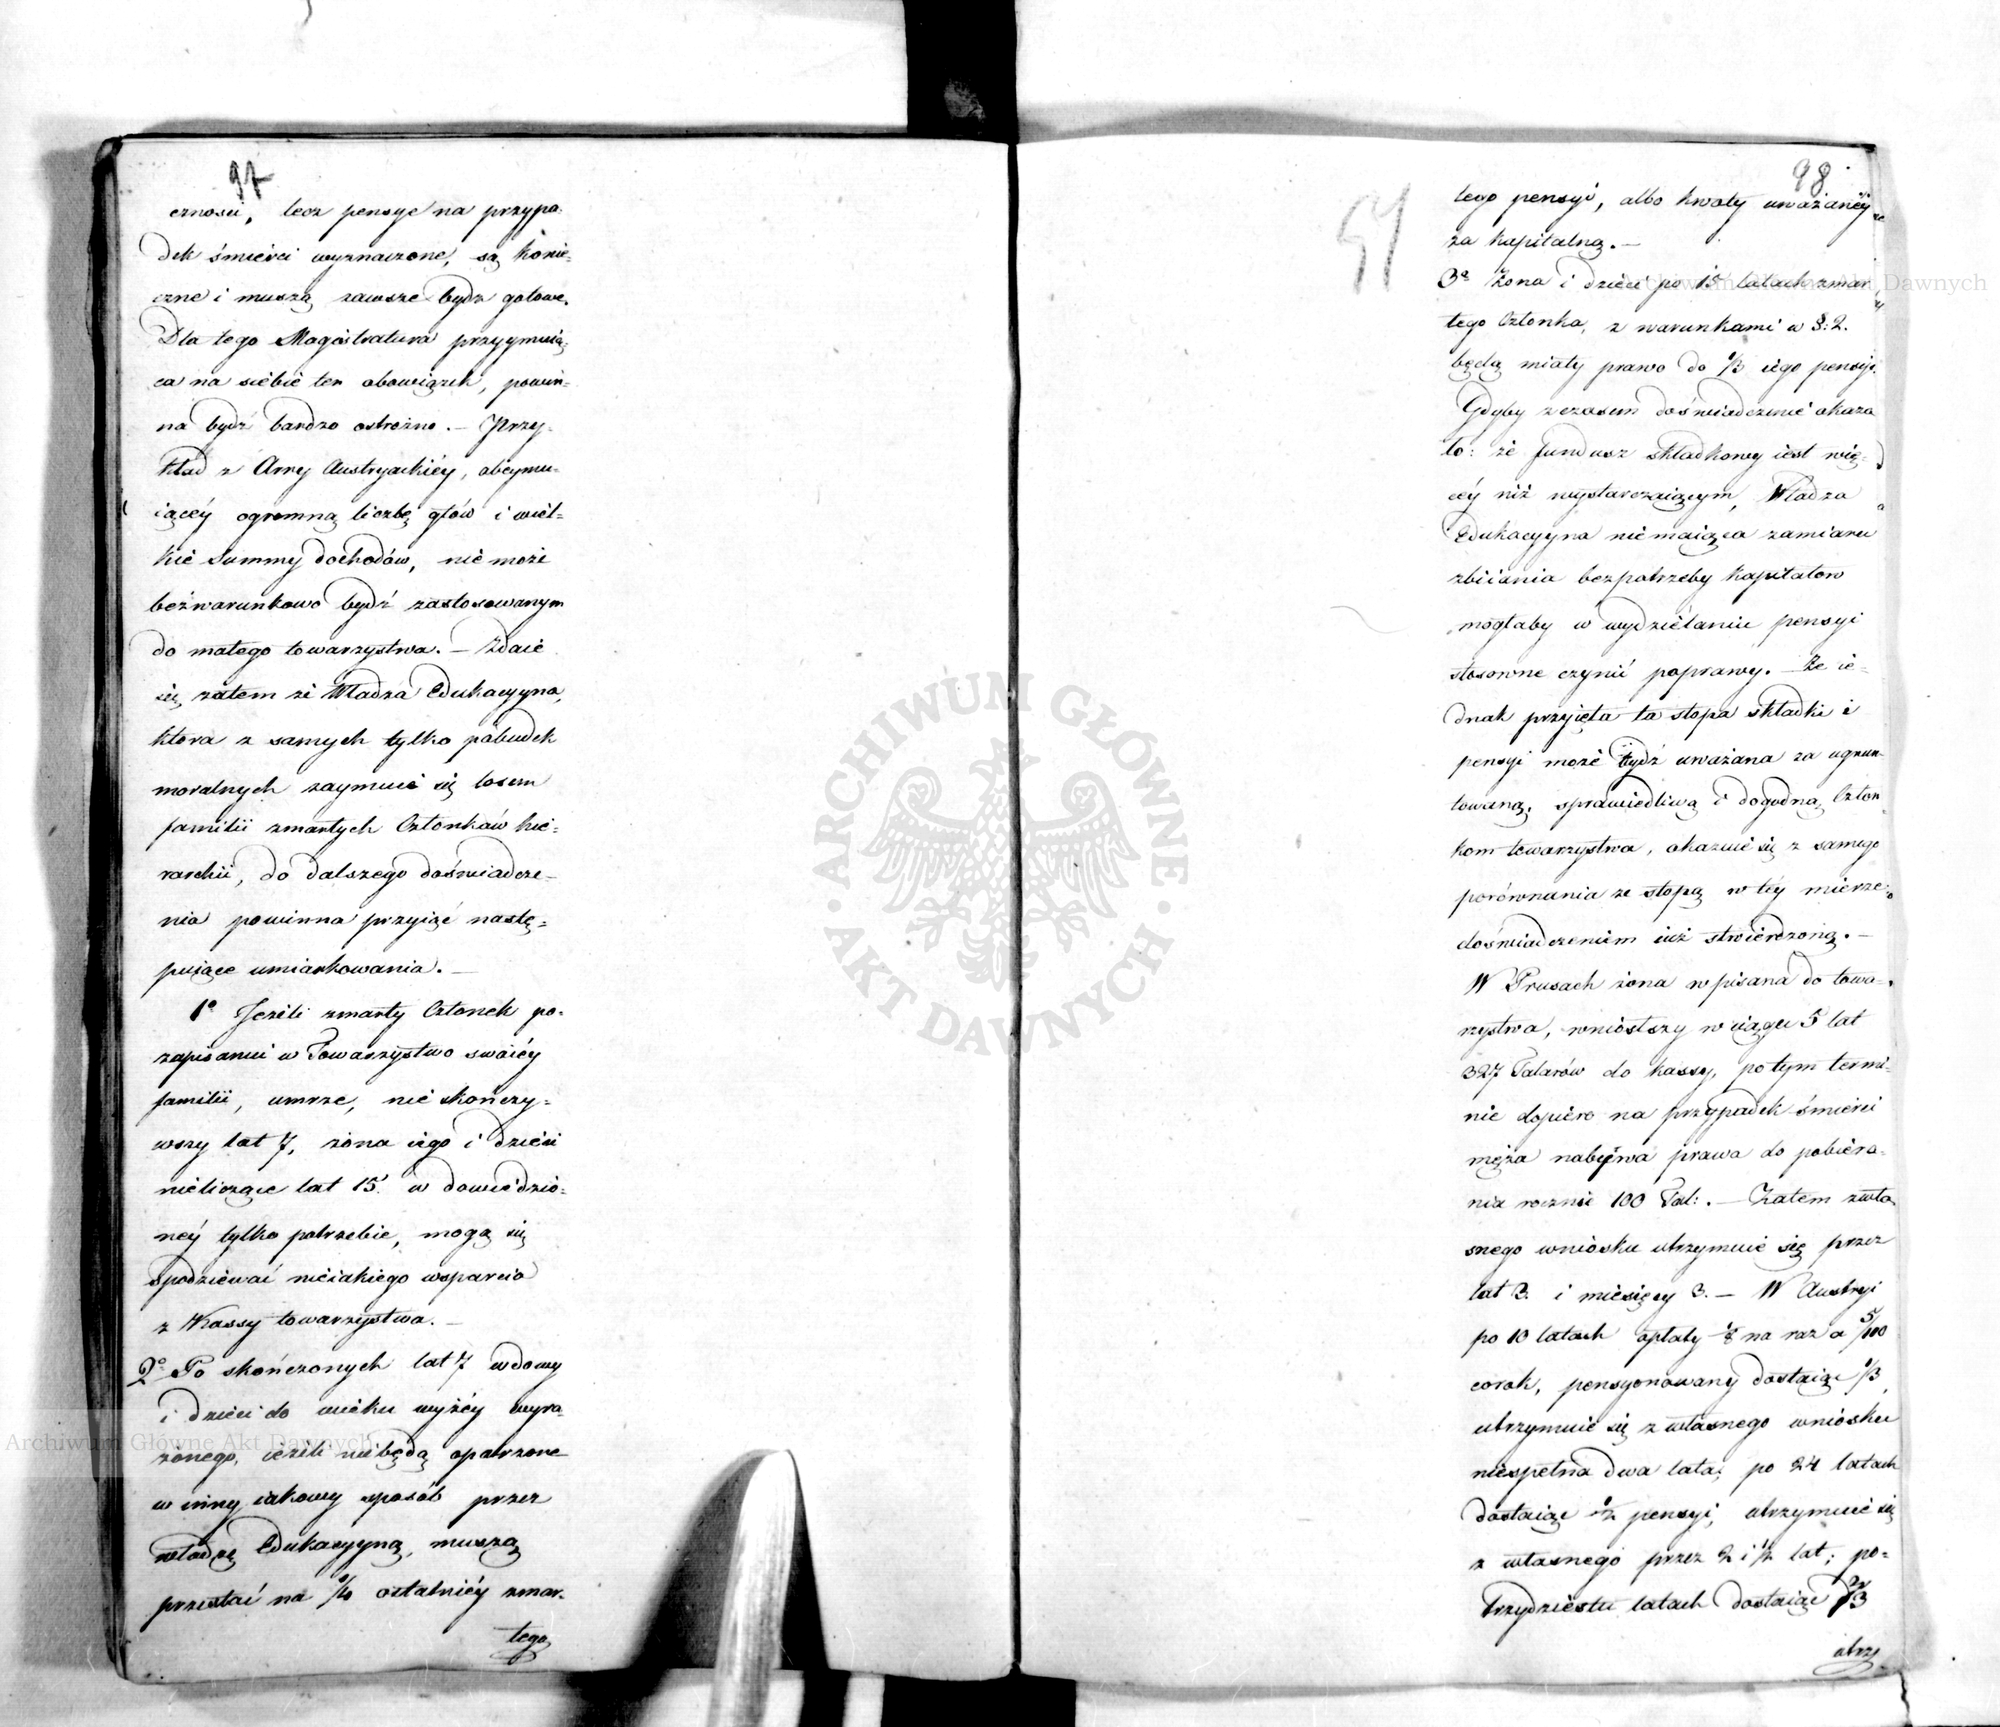 97
czności, lecz pensye na przypa-
dek śmierci wyznaczone, są konie-
czne i muszą zawsze bydź gotowe.
Dla tego Magistratura przyymuią-
ca na siebie ten obowiązek, powin-
na bydź bardzo ostrożna. — Przy-
kład z Austryackiéy, obeymu-
iącéy ogromną liczbę głów i wiel-
kie Summy dochodów, nie może
bezwarunkowo bydź zastosowanym
do małego towarzystwa. — Zdaie
się zatem że Władza Edukacyyna,
ktora z samych tylko pobudek
moralnych zaymuie się losem
familii zmarłych Członków hie-
rarchii, do dalszego doświadcze-
nia powinna przyiąć nastę-
puiące umiarkowania. —
1º Jeżeli zmarły Członek po-
zapisaniu w Towarzystwo swoiéy
familii, umrze, nie skończy-
wszy lat 7, żona iego i dzieci
nieliczące lat 15. w dowiedzio-
néy tylko potrzebie, mogą się
spodziewać nieiakiego wsparcia
z Kassy towarzystwa. —
2º Po skończonych lat 7 wdowy
i dzieci do wieku wyżéy wyra-
żonego, ieżeli niebędą opatrzone
w inny iakowy sposób przez
władzę Edukacyyną, muszą
przestać na ostatniéy zmar-
tego
98
łego pensyi, albo kwoty uważanéy
za kapitalną. —
3º Żona i dzieci po 15 latach zmar
łego Członka, z warunkami w §: 2.
będą miały prawo do 1/3 iego pensyi.
Gdyby z czasem doświadczenie okaza
ło: że fundusz składkowy iest wię-
céy niż wystarczaiącym, Władza
Edukacyyna niemaiąca zamiaru
zbiiania bezpotrzeby kapitałow
mogłaby w wydziélaniu pensyi
stosowne czynić poprawy. — Że ie-
dnak przyięta ta stopa składki i
pensyi może bydź uważana za ugrun-
towaną, sprawiedliwą i dogodną Człon
kom towarzystwa, okazuie się z samego
porównania ze stopą w téy mierze
doświadczeniem iuż stwierdzoną. —
W Prusach żona wpisana do towa-
rzystwa, wniosłszy w ciągu 5 lat
327 Talarów do kassy, po tym termi-
nie dopiéro na przypadek śmierci
męża nabywa prawa do pobiéra-
nia rocznie 100 Tal: . — Zatem zwła
snego wniosku utrzymuie się przez
lat 3. i miesięcy 3. — W Austryi
po 10 latach opłaty na raz a 5/100
corok, pensyonowany dostaiąc 1/3
utrzymuie się z własnego wniosku
niespełna dwa lata; po 24 latach
dostaiąc 1/2 pensyi, utrzymuie się
z własnego przez 2 i 1/2 lat; po-
trzydziestu latach dostaiąc 2/3
utrzy
ARCHIWUM GŁÓWNE AKT DAWNYCH
Archiwum Główne Akt Dawnych
Archiwum Główne Akt Dawnych